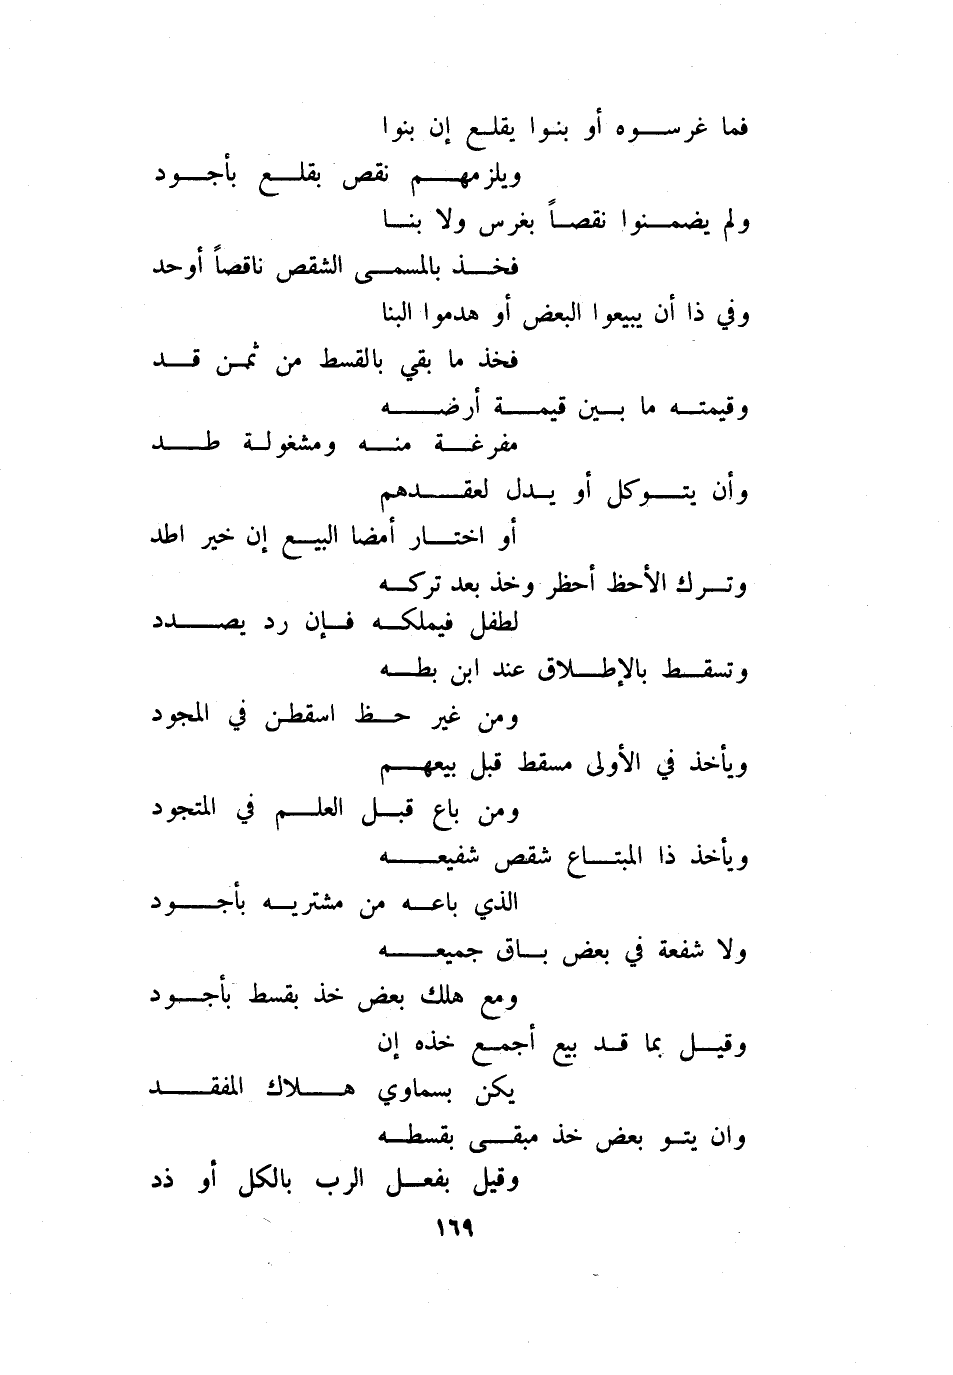 فما غرسوه أو بنوا يقلع إن بنوا
ويلزمهم نقص بقلع بأجود
ولم يضمنوا نقصاً بغرس ولا بنا
فخذ بالمسمى الشقص ناقصاً أوحد
وفي ذا أن يبيعوا البعض أو هدموا البنا
فخذ ما بقي بالقسط من ثمن قد
وقيمته ما بين قيمة أرضه
مفرغة منه ومشغولة طد
وأن يتوكل أو يدل لعقدهم
أو اختار أمضا البيع إن خير اطد
وترك الأحظ أحظر وخذ بعد تركه
لطفل فيملكه فإن رد يصدد
وتسقط بالإطلاق عند ابن بطه
ومن غير حظ اسقطن في المجود
ويأخذ في الأولى مسقط قبل بيعهم
ومن باع قبل العلم في المتجود
ويأخذ ذا المبتاع شقص شفيعه
الذي باعه من مشتريه بأجود
ولا شفعة في بعض باق جميعه
ومع هلك بعض خذ بقسط بأجود
وقيل بما قد بيع أجمع خذه إن
يكن بسماوي هلاك المفقد
وان يتو بعض خذ مبقى بقسطه
وقيل بفعل الرب بالكل أو ذد
١٦٩